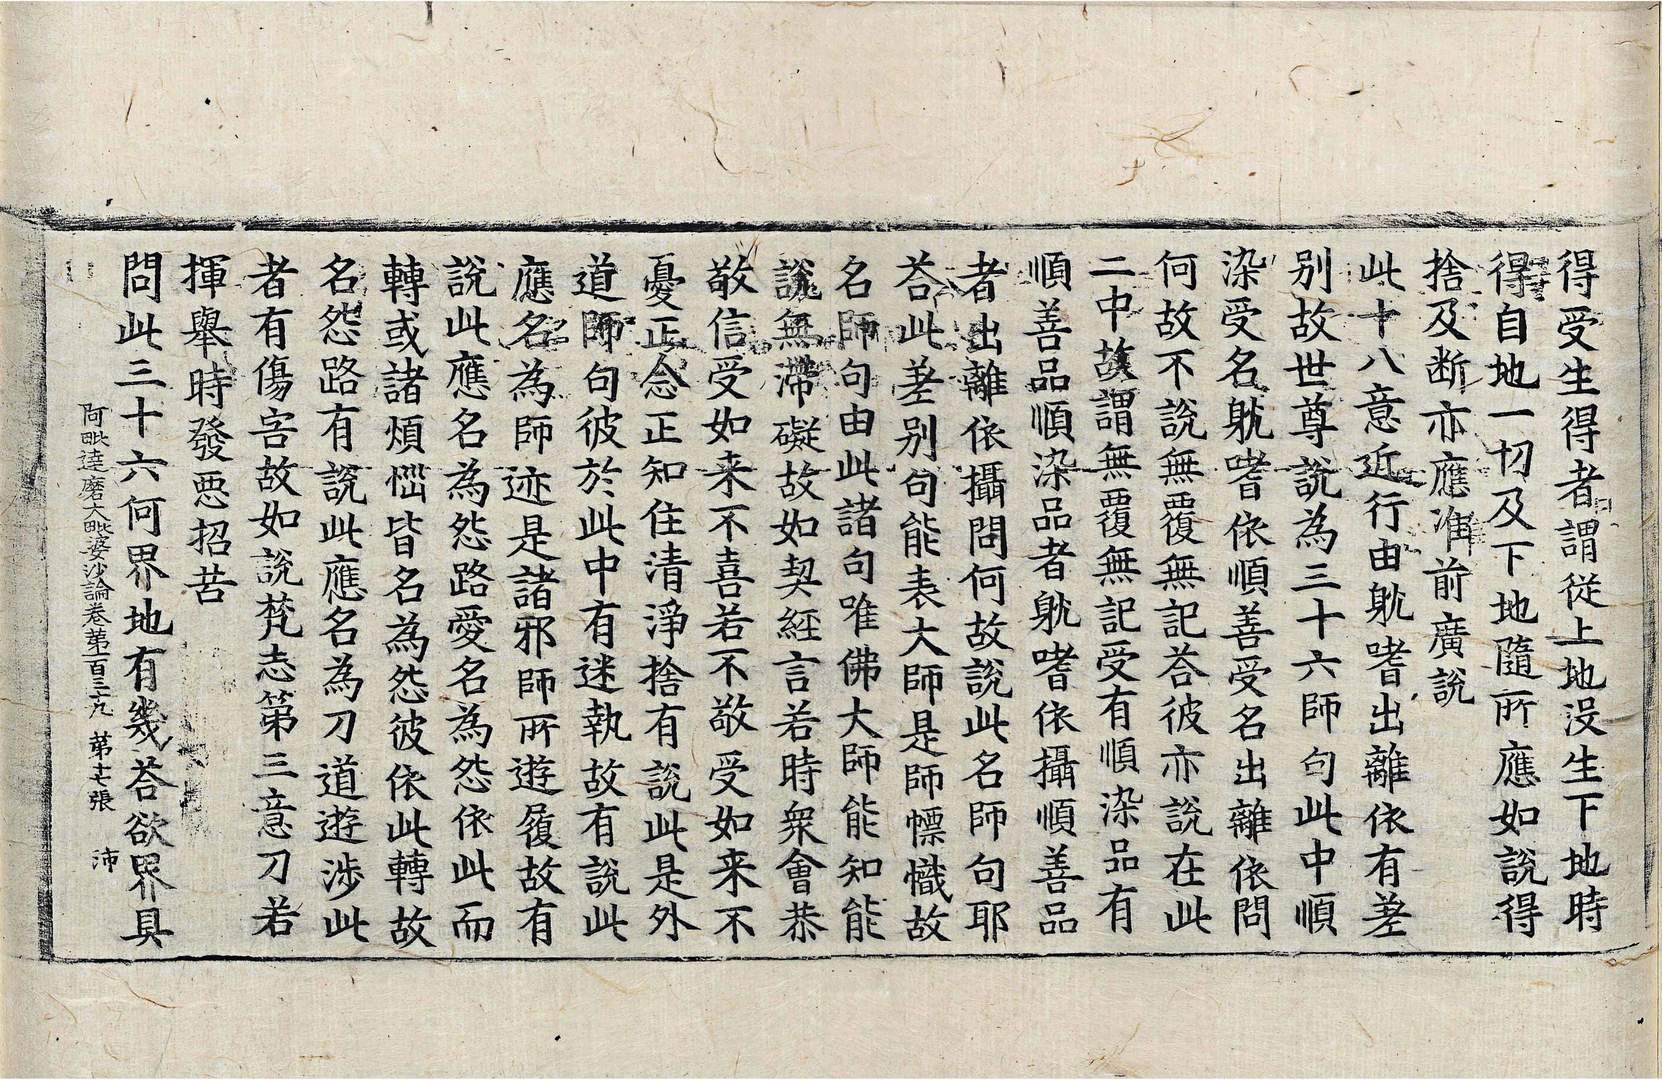 得受生得者謂從上地没生下地時
得自地一切及下地隨所應如說得
捨及断亦應准前廣說
此十八意近行由躭嗜出離依有差
别故世尊說為三十六師句此中順
染受名躭嗜依順善受名出離依問
何故不說無覆無記荅彼亦說在此
二中故謂無覆無記受有順染品有
順善品順染品者躭嗜依攝順善品
者出離依攝問何故說此名師句耶
荅此差别句能表大師是師幖幟故
名師句由此諸句唯佛大師能知能
說無滯礙故如契經言若時衆會恭
敬信受如来不喜若不敬受如来不
憂正念正知住清淨捨有說此是外
道師句彼於此中有迷執故有說此
應名為師迹是諸邪師所遊履故有
說此應名為怨路愛名為怨依此而
轉或諸煩惱皆名為怨彼依此轉故
名怨路有說此應名為刀道遊涉此
者有傷害故如說梵志第三意刀若
揮舉時發惡招苦
問此三十六何界地有幾荅欲界具
阿毗達磨大毗婆沙論卷第一百三十九 第十七張 沛